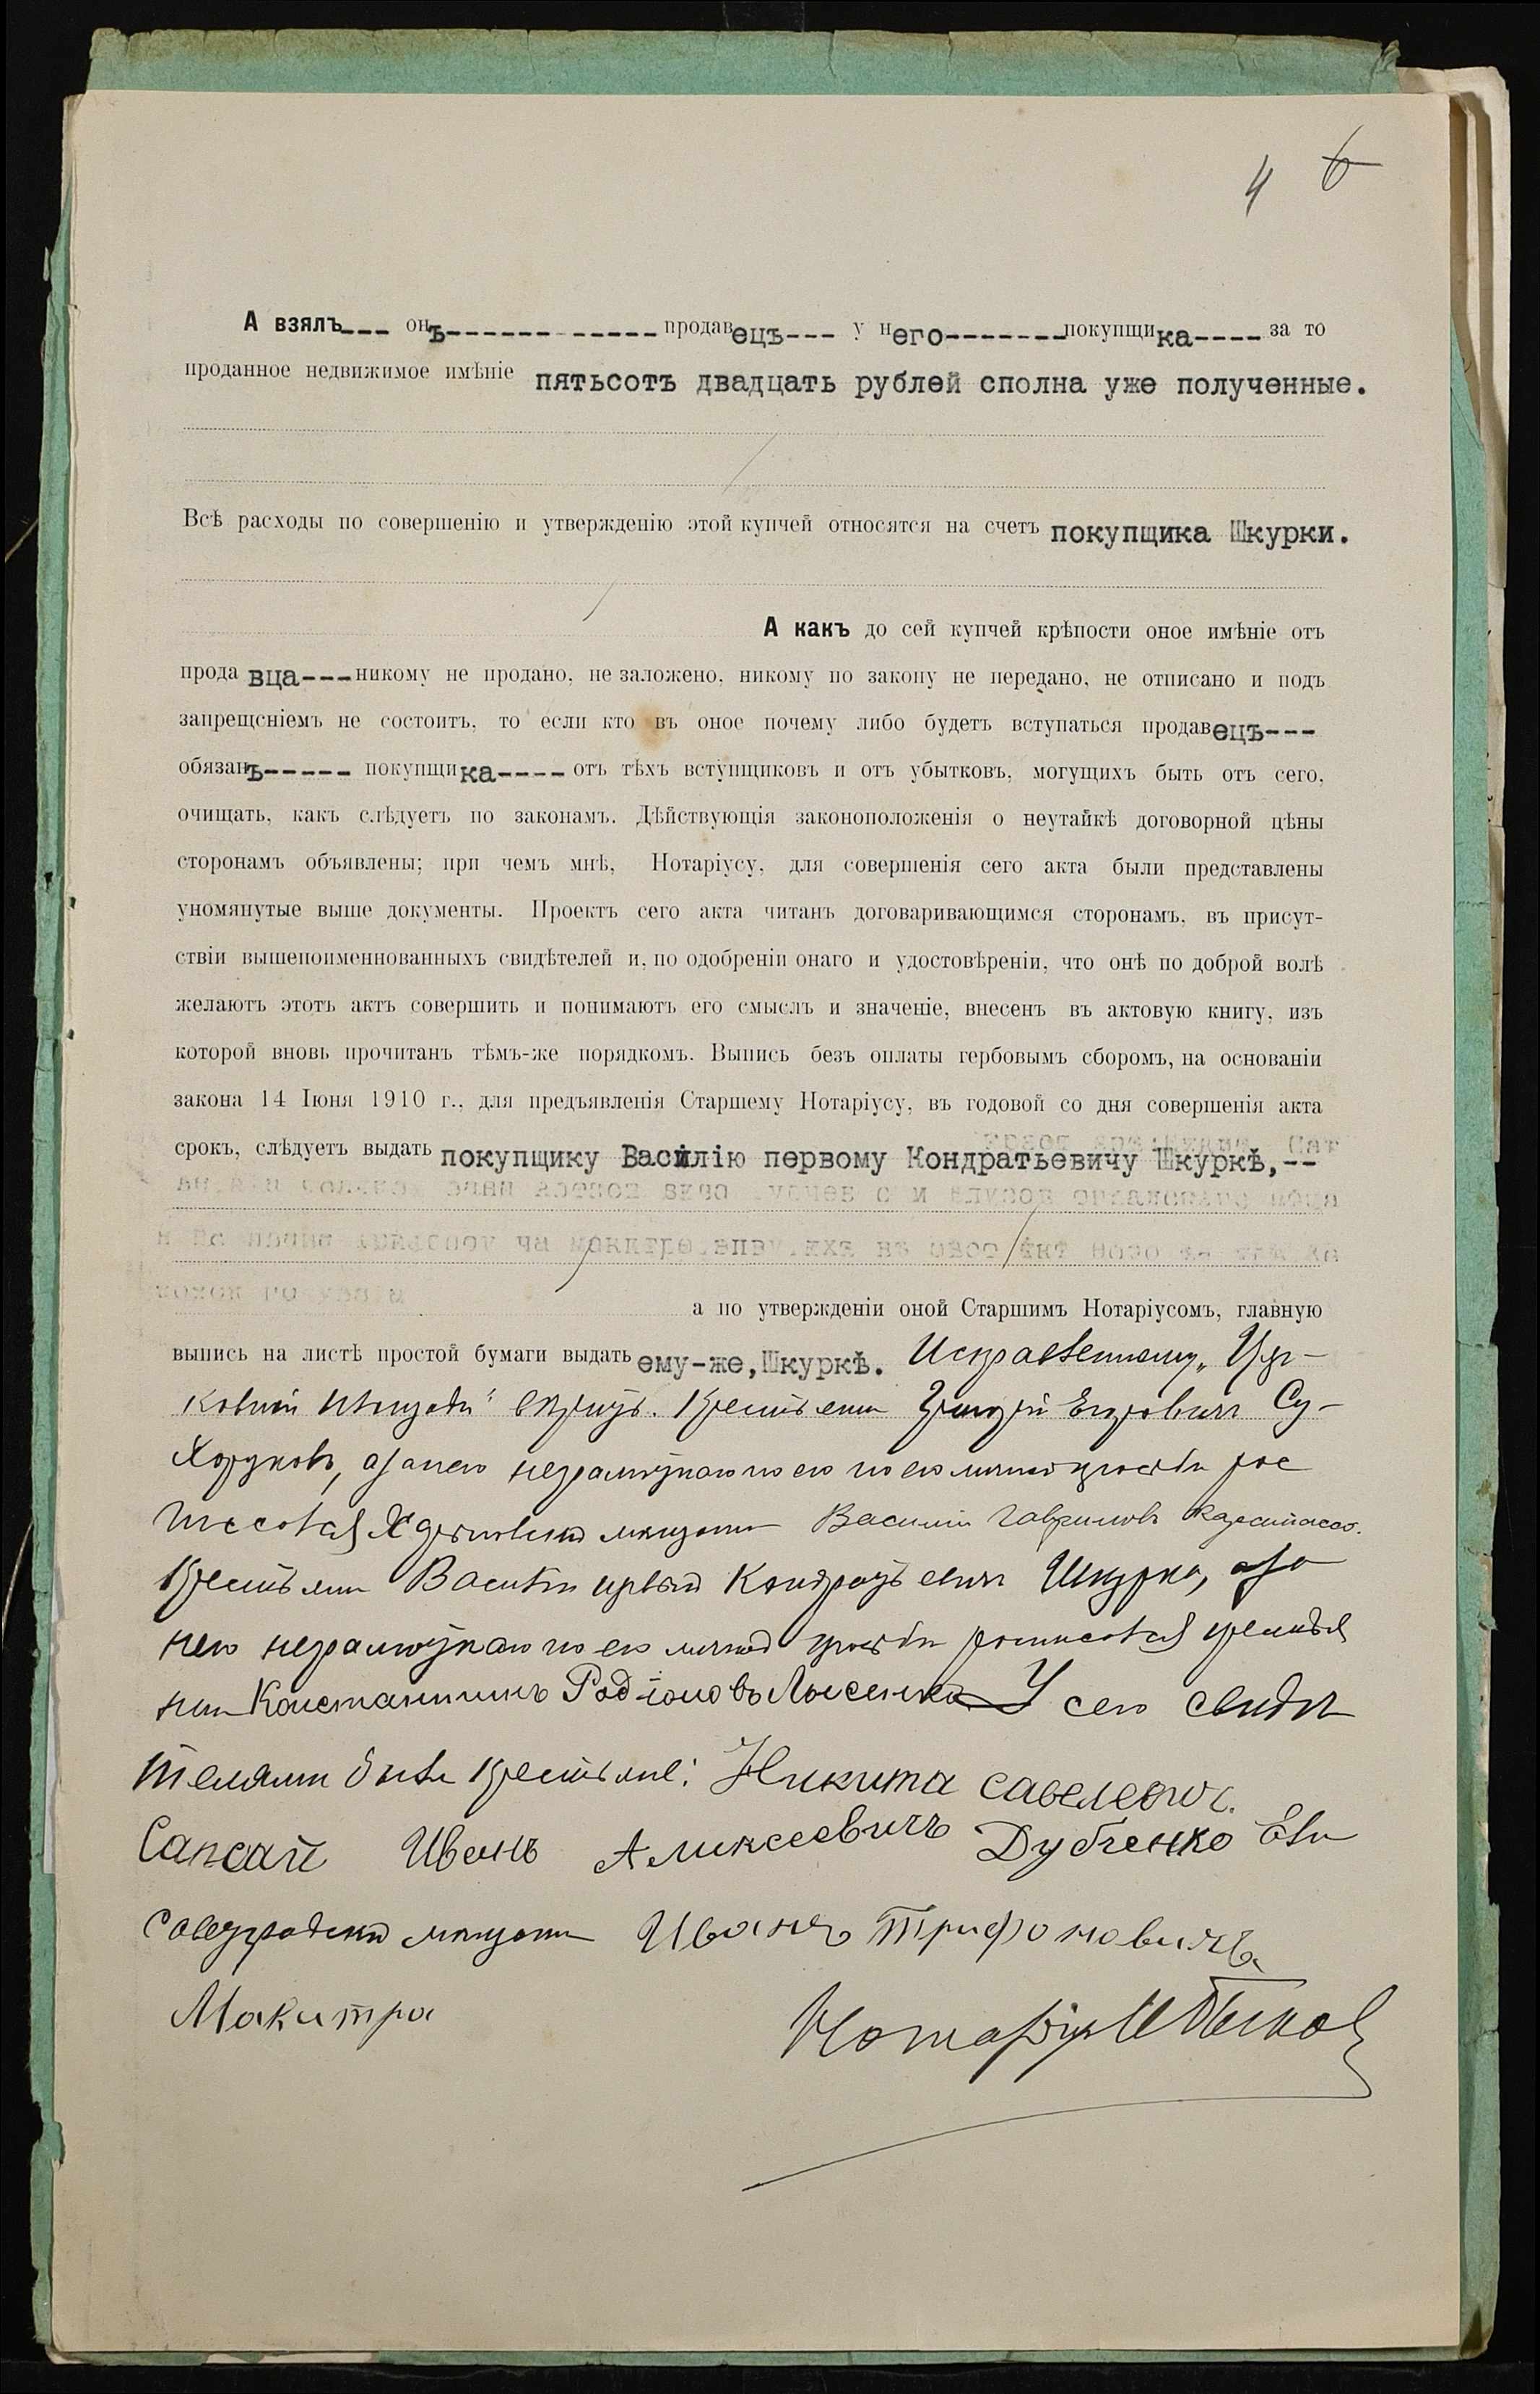 4 6
А взялъ--- онъ------------- продавецъ--- у него-------покупщика---- за то
проданное недвижимое имѣніе пятьсотъ двадцать рублей сполна уже полученные.
Всѣ расходы по совершенію и утвержденію этой купчей относятся на счетъ покупщика Шкурки.
А какъ до сей купчей крѣпости оное имѣніе отъ
прода вца---никому не продано, не заложено, никому по закону не передано, не отписано и подъ
запрещеніемъ не состоитъ, то если кто въ оное почему либо будетъ вступаться продавецъ---
обязанъ----- покупщика---- отъ тѣхъ вступщиковъ и отъ убытковъ, могущихъ быть отъ сего,
очищать, какъ слѣдуетъ по законамъ. Дѣйствующія законоположенія о неутайкѣ договорной цѣны
сторонамъ объявлены; при чемъ мнѣ, Нотаріусу, для совершенія сего акта были представлены
упомянутые выше документы. Проектъ сего акта читанъ договаривающимся сторонамъ, въ присут-
ствіи вышепоименнованныхъ свидѣтелей и, по одобреніи онаго и удостовѣреніи, что онѣ по доброй волѣ
желаютъ этотъ актъ совершить и понимаютъ его смыслъ и значеніе, внесенъ въ актовую книгу, изъ
которой вновь прочитанъ тѣмъ-же порядкомъ. Выпись безъ оплаты гербовымъ сборомъ, на основаніи
закона 14 Іюня 1910 г., для предъявленія Старшему Нотаріусу, въ годовой со дня совершенія акта
срокъ, слѣдуетъ выдать покупщику Василію первому Кондратьевичу Шкуркѣ,--
а по утвержденіи оной Старшимъ Нотаріусомъ, главную
выпись на листѣ простой бумаги выдать ему-же, Шкуркѣ. Исправленному „Цер-
ковной площади“ вѣрить. Крестьянинъ Григорій Егоровичъ Су-
хоруковъ, а за него неграмотнаго по его личной просьбѣ рос
писался мѣщанинъ Василій Гавриловъ
Крестьянинъ Василій первый Кондратьевичъ Шкурка, а за
него неграмотнаго по его личной просьбѣ росписался крестья
нинъ Константинъ Родіоновъ Лысенко У сего свидѣ
телями были крестьяне: Никита савелевич.
Сапсай Иванъ Аликсеевичъ Дубченко Ели
саветградскій мѣщанинъ Иванъ Трифоновичъ
Макитра Нотаріусъ